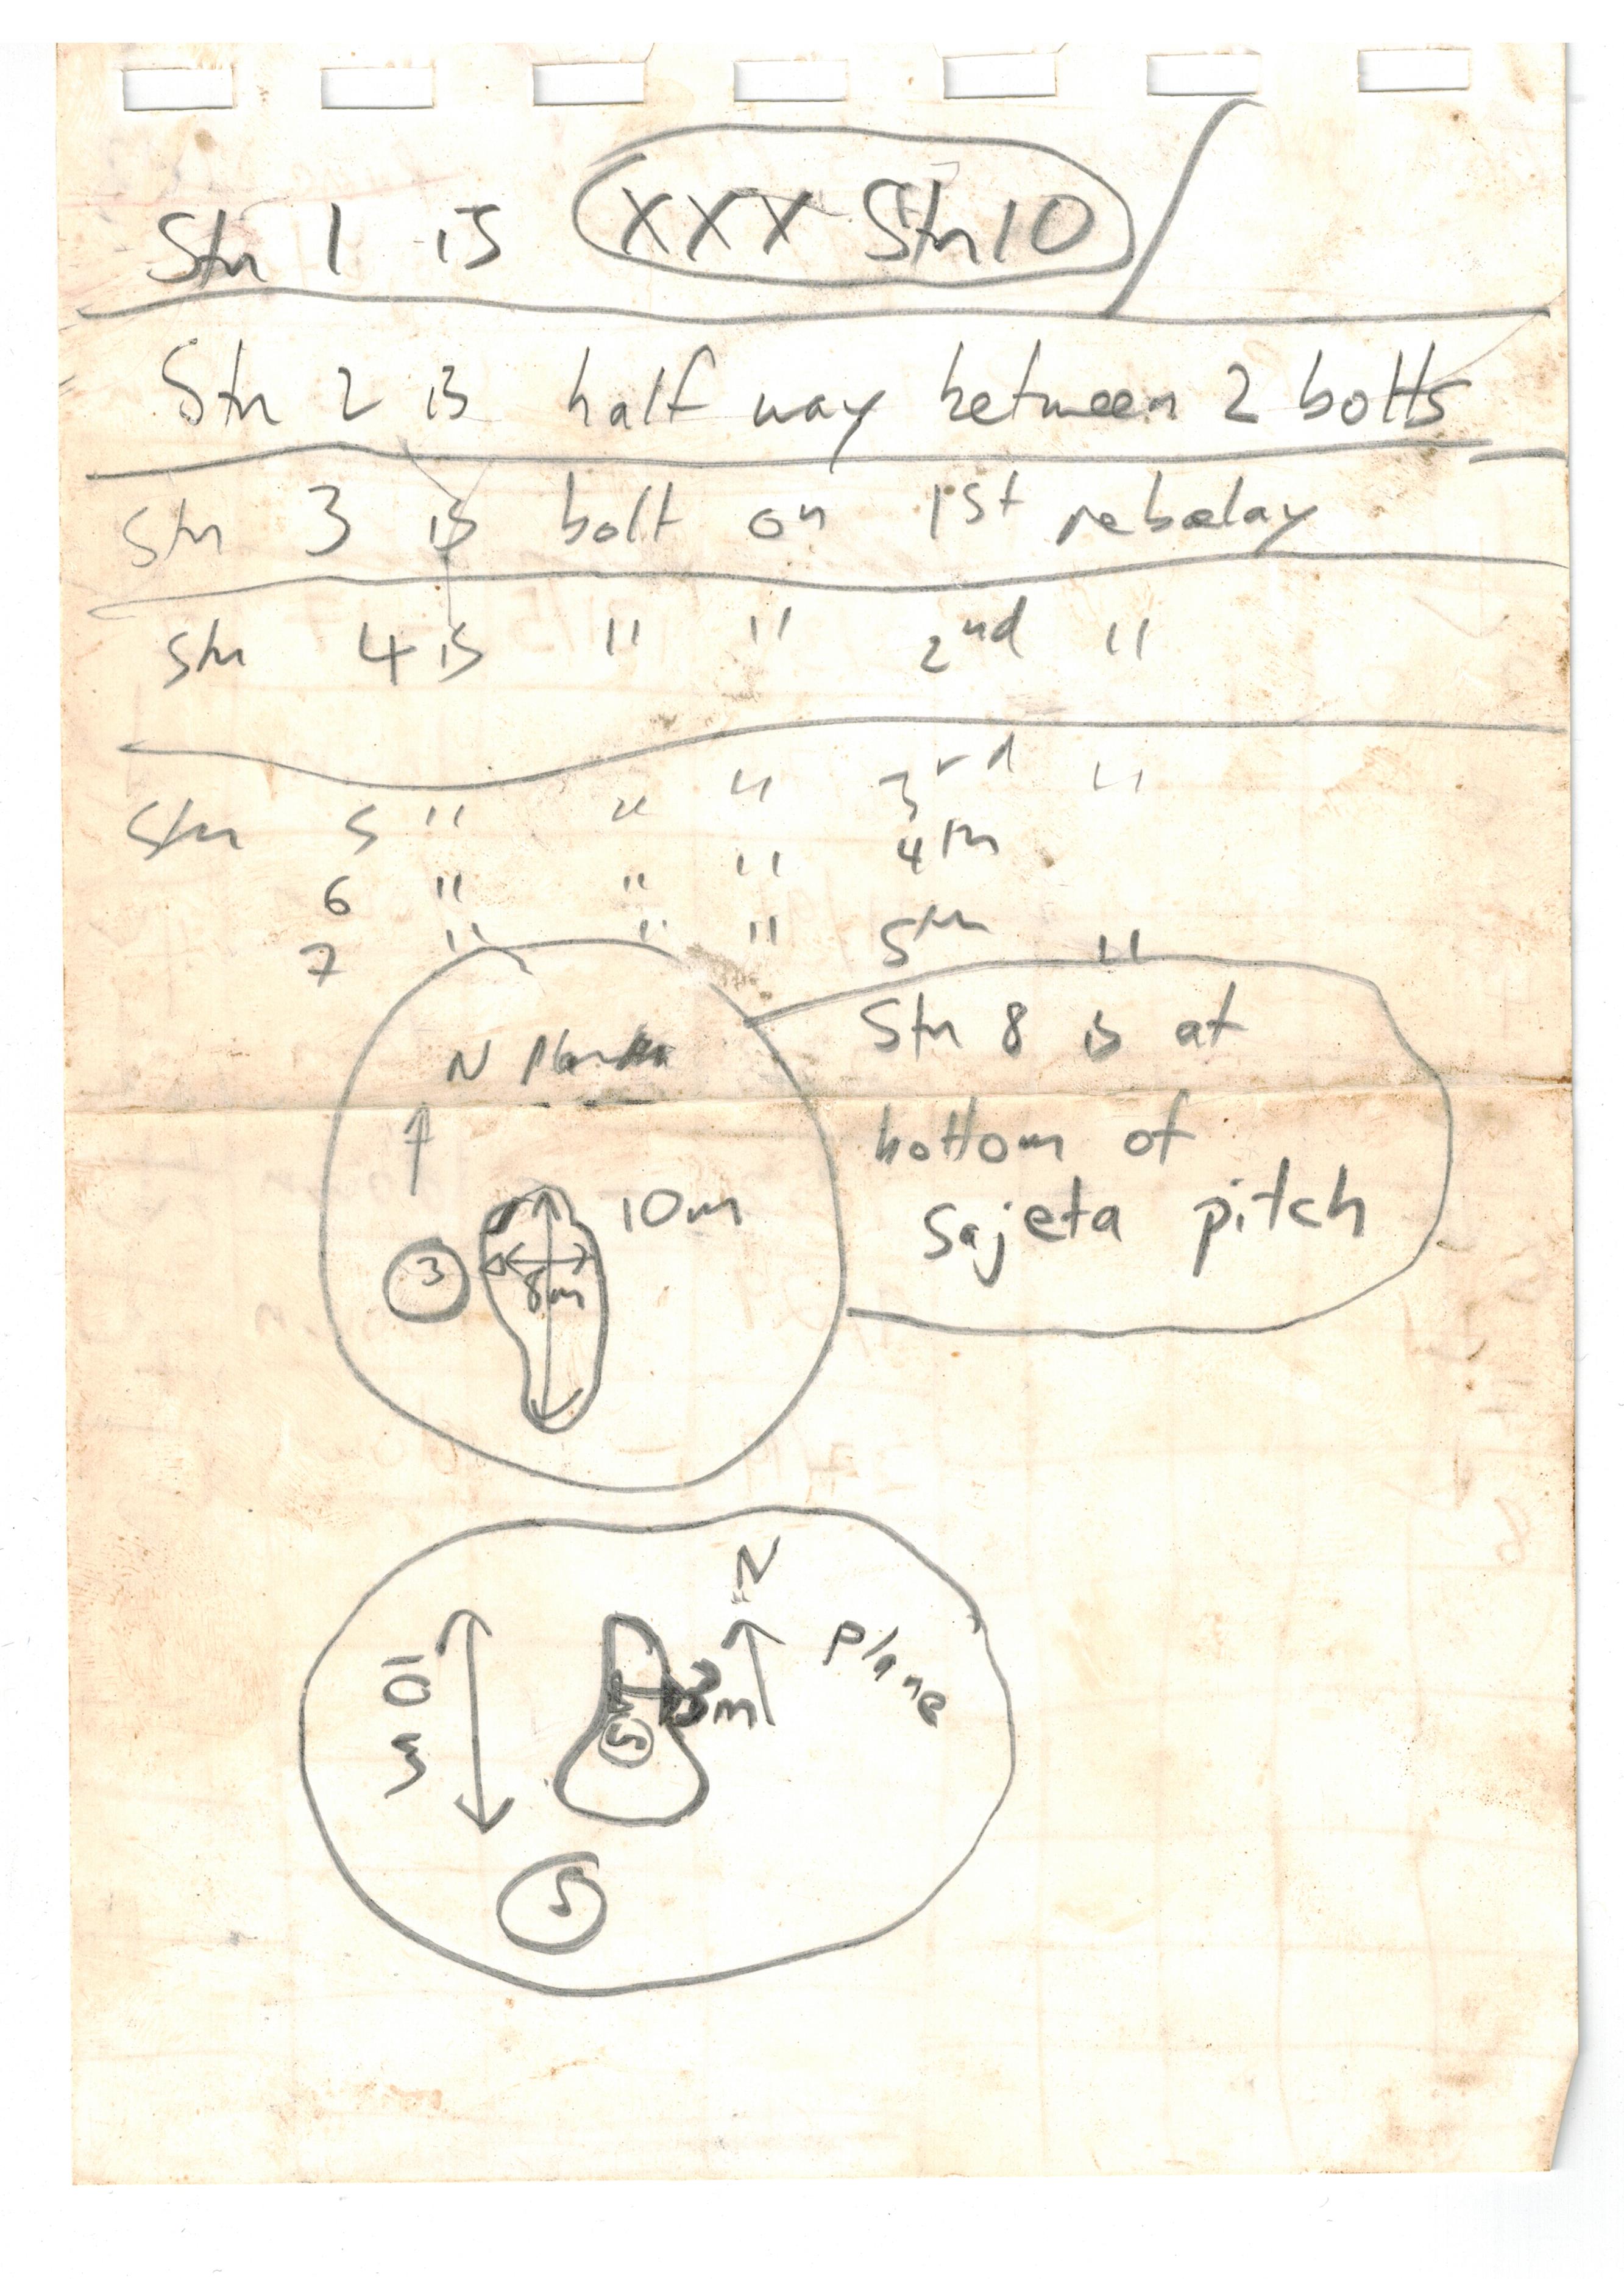 Stn 1 is XXX Stn 10
Stn 2 is half way between 2 bolts
Stn 3 is bolt on 1st rebelay
Stn 4 is " " 2nd "
Stn 5 " " " 3rd "
6 " " " 4th
7 " " " 5th "
Stn 8 is at
bottom of
Sajeta pitch
N
10m
3
8m
N
Plane
10m
5
5